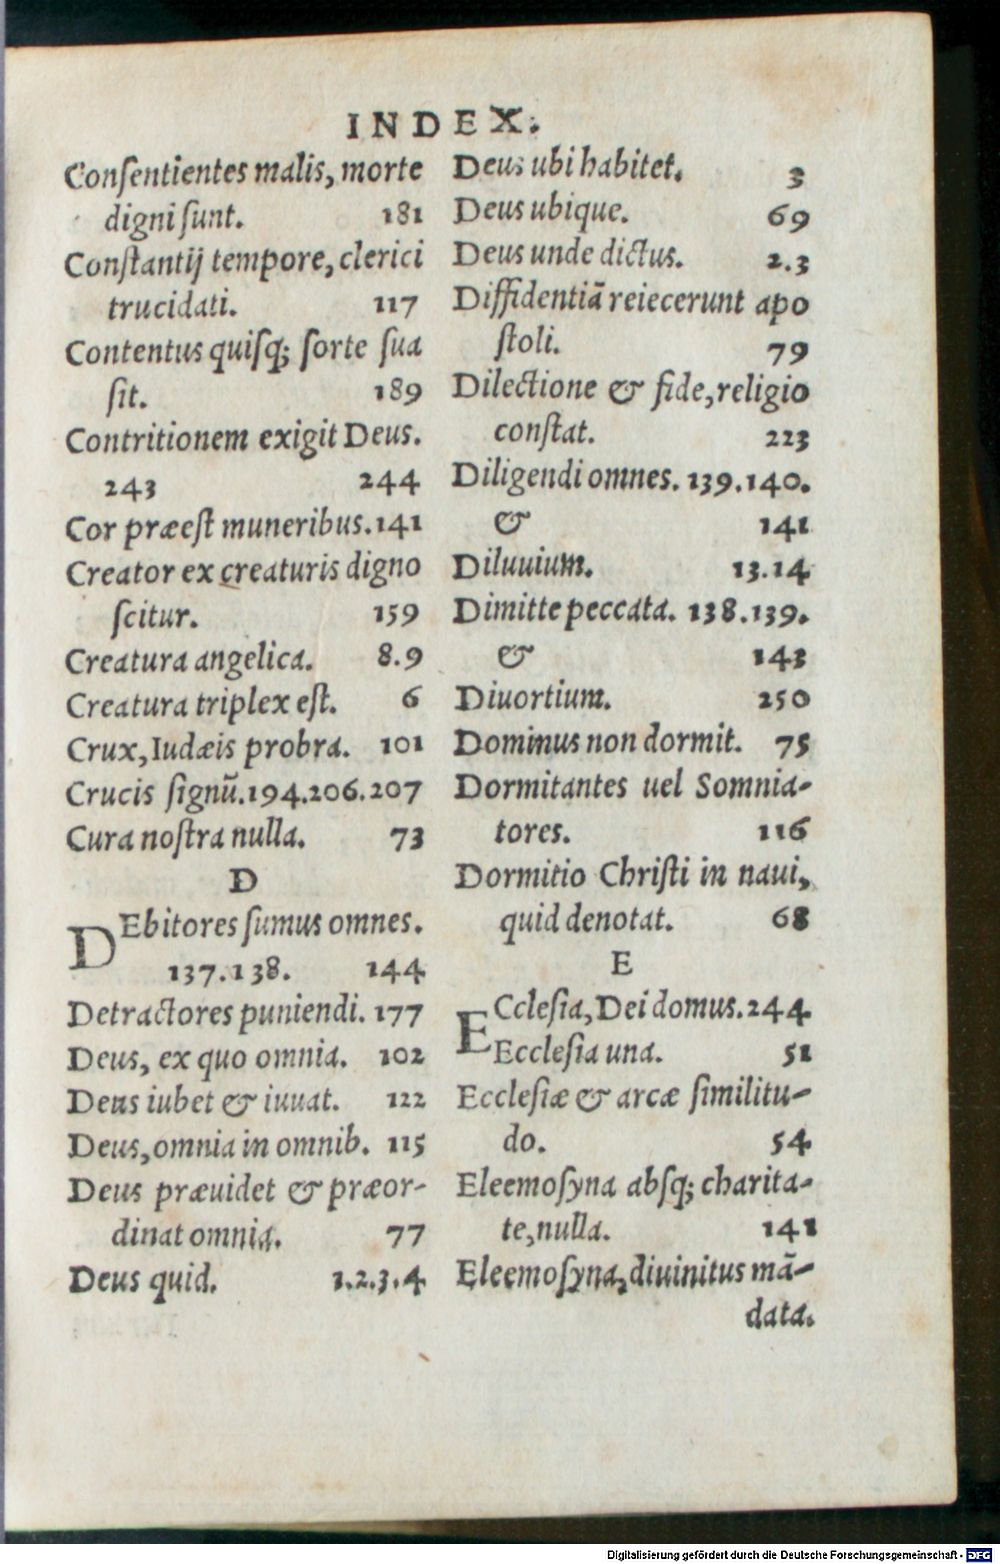 INDEX.
Conſentientes malis, morte
digni ſunt. 181
Conſtantij tempore, clerici
trucidati. 117
Contentus quiſq; ſorte ſua
ſit. 189
Contritionem exigit Deus.
243 244
Cor præeſt muneribus. 141
Creator ex creaturis digno
ſcitur. 159
Creatura angelica. 8.9
Creatura triplex eſt. 6
Crux, Iudæis probra. 101
Crucis ſignũ. 194.206.207
Cura noſtra nulla. 73
D
DEbitores ſumus omnes.
137.138. 144
Detractores puniendi. 177
Deus, ex quo omnia. 102
Deus iubet & iuuat. 122
Deus, omnia in omnib. 115
Deus præuidet & præor-
dinat omnia. 77
Deus quid. 1.2.3.4
Deus ubi habitet. 3
Deus ubique. 69
Deus unde dictus. 2.3
Diffidentiã reiecerunt apo
ſtoli. 79
Dilectione & fide, religio
conſtat. 223
Diligendi omnes. 139.140.
& 141
Diluuium. 13.14
Dimitte peccata. 138.139.
& 143
Diuortium. 250
Dominus non dormit. 75
Dormitantes uel Somnia-
tores. 116
Dormitio Chriſti in naui,
quid denotat. 68
E
ECcleſia, Dei domus. 244
Eccleſia una. 51
Eccleſiæ & arcæ ſimilitu-
do. 54
Eleemoſyna abſq; charita-
te, nulla. 141
Eleemoſyna, diuinitus mã-
data.
Digitalisierung gefördert durch die Deutsche Forschungsgemeinschaft - DFG